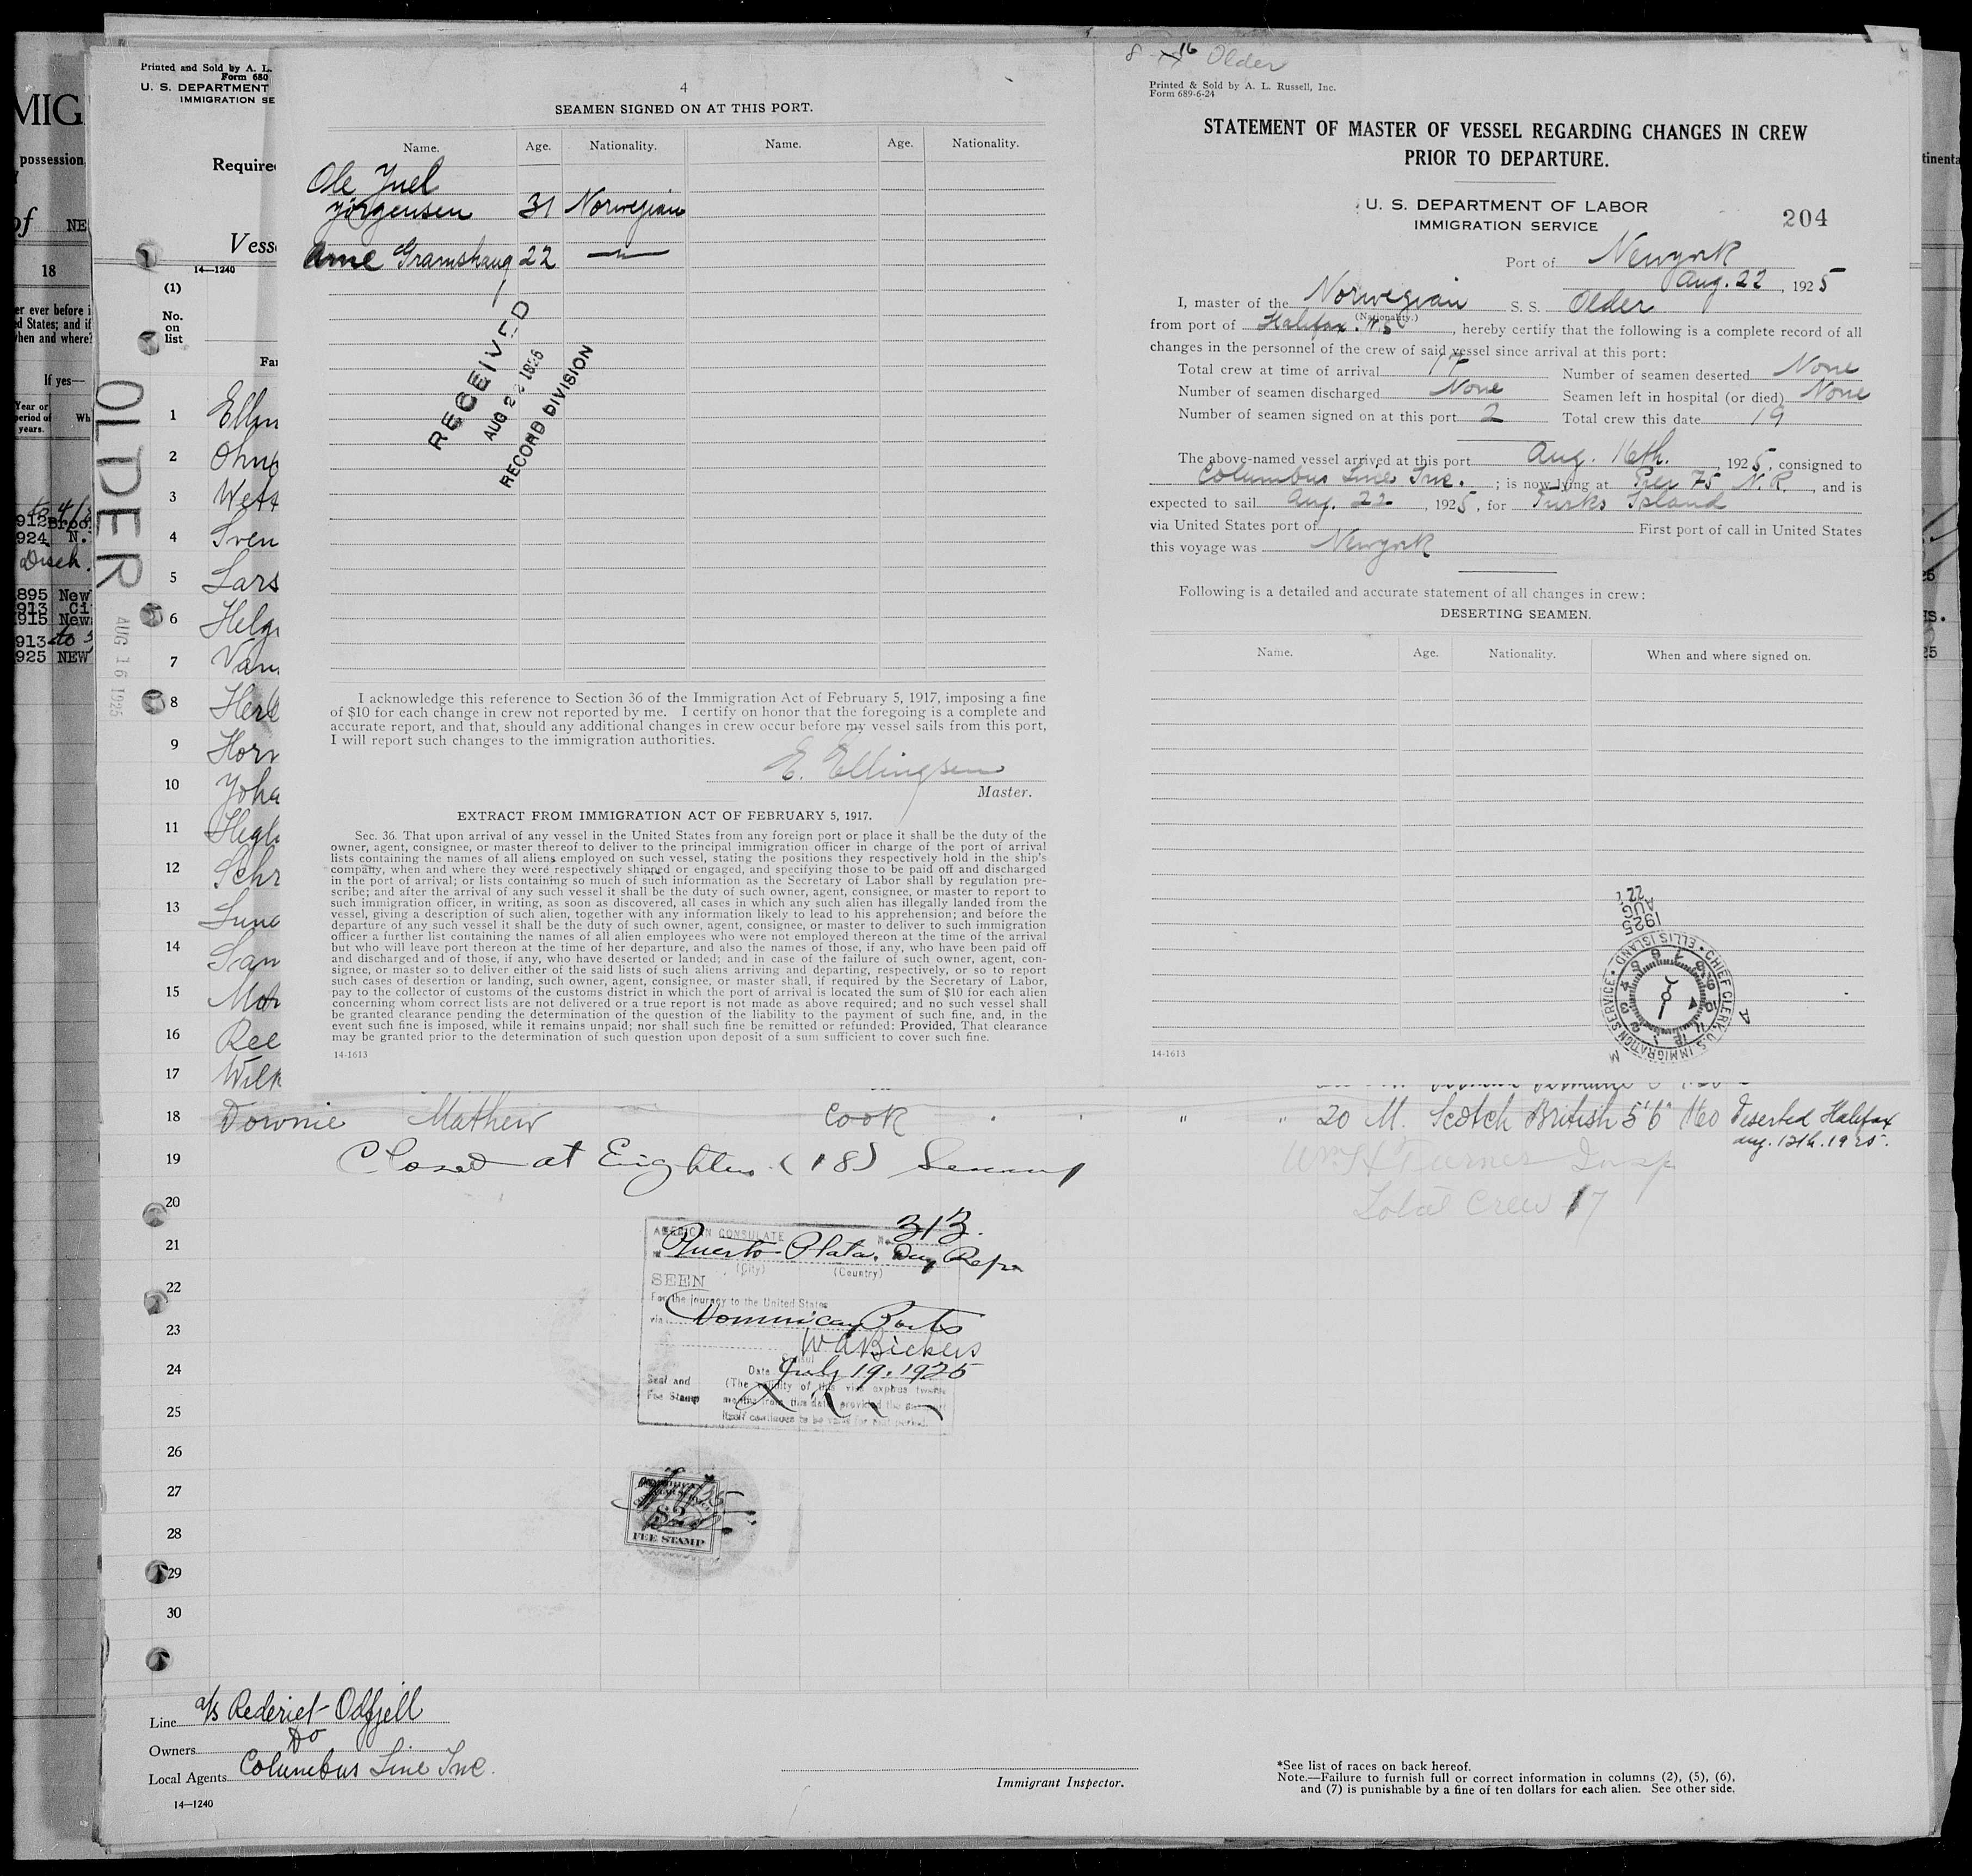 8 16 Older
Printed and Sold by A. L.
Form 680
U. S. DEPARTMENT
IMMIGRATION SE
Require
Vess
14—1240
(1)
No.
on
list
Fa
MIG
possession
of NE
18
er ever before i
ed States; and if
when and where?
If yes—
Year or
period of
years.
Wh
912 Broo
924 N.
Disch.
895 New
913 Ci
915 New
913 to 3
925 NEW
OLDER
AUG 16 1925
4
SEAMEN SIGNED ON AT THIS PORT.
Name. Age. Nationality. Name. Age. Nationality.
Ole Juel
Jörgensen 31 Norwegian
Arne Gramshaug 22 —"—
RECEIVED
AUG 2
RECORD DIVISION
I acknowledge this reference to Section 36 of the Immigration Act of February 5, 1917, imposing a fine
of $10 for each change in crew not reported by me. I certify on honor that the foregoing is a complete and
accurate report, and that, should any additional changes in crew occur before my vessel sails from this port,
I will report such changes to the immigration authorities.
E. Ellingsen
Master.
EXTRACT FROM IMMIGRATION ACT OF FEBRUARY 5, 1917.
Sec. 36. That upon arrival of any vessel in the United States from any foreign port or place it shall be the duty of the
owner, agent, consignee, or master thereof to deliver to the principal immigration officer in charge of the port of arrival
lists containing the names of all aliens employed on such vessel, stating the positions they respectively hold in the ship's
company, when and where they were respectively shipped or engaged, and specifying those to be paid off and discharged
in the port of arrival; or lists containing so much of such information as the Secretary of Labor shall by regulation pre-
scribe; and after the arrival of any such vessel it shall be the duty of such owner, agent, consignee, or master to report to
such immigration officer, in writing, as soon as discovered, all cases in which any such alien has illegally landed from the
vessel, giving a description of such alien, together with any information likely to lead to his apprehension; and before the
departure of any such vessel it shall be the duty of such owner, agent, consignee, or master to deliver to such immigration
officer a further list containing the names of all alien employees who were not employed thereon at the time of the arrival
but who will leave port thereon at the time of her departure, and also the names of those, if any, who have been paid off
and discharged and of those, if any, who have deserted or landed; and in case of the failure of such owner, agent, con-
signee, or master so to deliver either of the said lists of such aliens arriving and departing, respectively, or so to report
such cases of desertion or landing, such owner, agent, consignee, or master shall, if required by the Secretary of Labor,
pay to the collector of customs of the customs district in which the port of arrival is located the sum of $10 for each alien
concerning whom correct lists are not delivered or a true report is not made as above required; and no such vessel shall
be granted clearance pending the determination of the question of the liability to the payment of such fine, and, in the
event such fine is imposed, while it remains unpaid; nor shall such fine be remitted or refunded: Provided, That clearance
may be granted prior to the determination of such question upon deposit of a sum sufficient to cover such fine.
14-1613
Printed & Sold by A. L. Russell, Inc.
Form 689-6-24
STATEMENT OF MASTER OF VESSEL REGARDING CHANGES IN CREW
PRIOR TO DEPARTURE.
U. S. DEPARTMENT OF LABOR
IMMIGRATION SERVICE
204
Port of Newyork
Aug. 22, 1925
I, master of the Norwegian S. S. Older
(Nationality.)
from port of Halifax. N.S., hereby certify that the following is a complete record of all
changes in the personnel of the crew of said vessel since arrival at this port:
Total crew at time of arrival 17 Number of seamen deserted None
Number of seamen discharged None Seamen left in hospital (or died) None
Number of seamen signed on at this port 2 Total crew this date 19
The above-named vessel arrived at this port Aug. 16th. , 1925, consigned to
Columbus Line Inc. ; is now lying at Pier 75 N.R. , and is
expected to sail Aug. 22 , 1925, for Turks Island
via United States port of First port of call in United States
this voyage was Newyork
Following is a detailed and accurate statement of all changes in crew:
DESERTING SEAMEN.
Name. Age. Nationality. When and where signed on.
1925
AUG
22
CHIEF CLERK, U.S. IMMIGRATION SERVICE • ELLIS ISLAND •
A
M
14-1613
1 Ellin
2 Ohn
3 Wets
4 Sven
5 Lars
6 Helg
7 Van
8 Herl
9 Horn
10 Joha
11 Hegl
12 Schr
13 Lund
14 San
15 Mor
16 Ree
17 Wilk
18 Downie Mathew Cook " " 20 M. Scotch British 5'6" 160 Deserted Halifax
Aug. 12th. 1925.
19 Closed at Eighteen (18) Seamen
Wm H Turner Insp
Total Crew 17
20
21
22
23
24
25
26
27
28
29
30
AMERICAN CONSULATE No. 313.
at Puerto Plata. Dom Repn
(City) (Country)
SEEN
For the journey to the United States
via Dominican Ports
W A Bickers
Consul
Date July 19. 1925
Seal and
Fee Stamp
(The validity of this visa expires twelve
months from this date provided the passport
itself continues to be valid for that period.
$2
FEE STAMP
Line a/s Rederiet Odfjell
Owners Do
Local Agents Columbus Line Inc.
14—1240
Immigrant Inspector.
*See list of races on back hereof.
Note.—Failure to furnish full or correct information in columns (2), (5), (6),
and (7) is punishable by a fine of ten dollars for each alien. See other side.